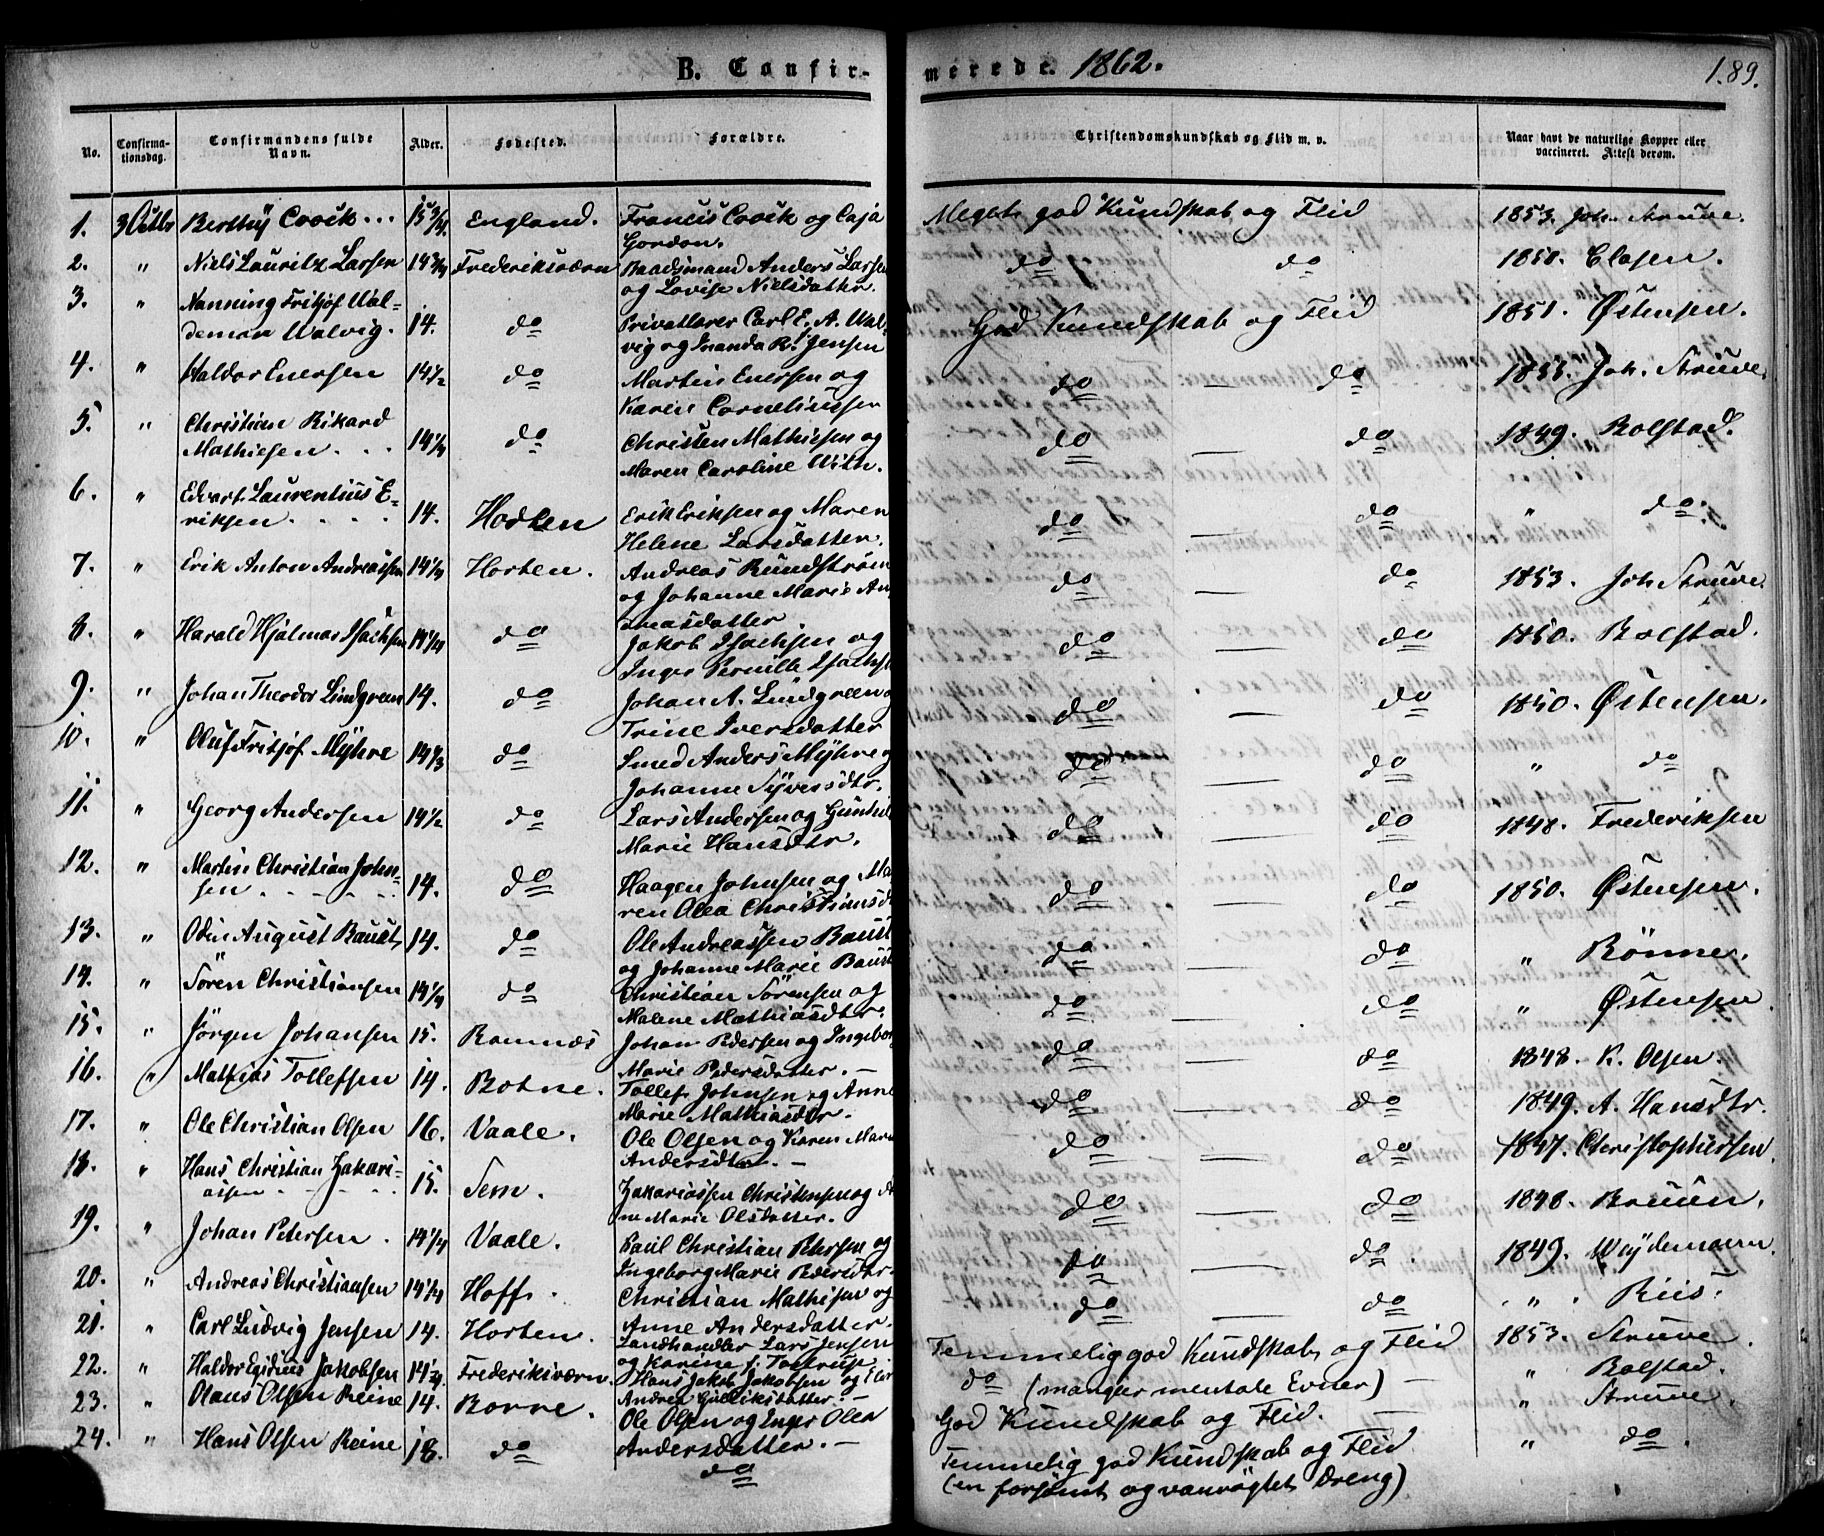 B. Confir-
merede. 1862.
189.
No.
Confirma-
tionsdag.
Confirmandens fulde
Navn.
Alder.
Fødested.
Forældre.
Christendomskundskab og Flid m. v.
Naar havt de naturlige Kopper eller
vaccineret. Attest derom.
1. 3 Octbr Berthy Coock ... 15 3/4. England. Francis Coock og Caja Meget god Kundskab og Flid 1853. Joh. Struve.
Gordon.
2. " Niels Lauritz Larsen 14 3/4 Frederiksværn Baadsmand Anders Larsen do do 1850. Clasen.
og Lovise Nielsdatter.
3. " Nanning Fritjof Wal-
demar Walvig. 14. do Privatlærer Carl E. A. Wal- God Kundskab og Flid 1851. Østensen.
vig og Inanda R. Jensen
4. " Haldor Enersen 14 1/2 do Martin Enersen og do — do 1855. Joh. Struve.
Karen Corneliussen
5. " Christian Rikard
Mathiesen . . . 14 1/4 do Christen Mathiesen og do — do 1849. Bolstad.
Maren Caroline With.
6. " Edvart Laurentius E-
riksen. . . . 14. Horten Erik Eriksen og Maren do — do " do
Helene Larsdatter.
7. " Erik Anton Andreassen 14 1/4 Horten. Andreas Rundström do — do 1853. Joh Struve
og Johanne Marie An-
dreasdatter
8. " Harald Hjalmar Isachsen 14 1/4 do Jakob Isachsen og do — do 1850. Bolstad.
Inger Pernille Isachs
9. " Johan Theodor Lindgreen 14. do Johan A. Lindgreen og do — do 1850. Østensen.
Trine Iversdatter
10. " Oluf Fritjof Myhre 14 1/3 do Smed Anders Myhre og do — do " do
Johanne Syversdtr.
11. " Georg Andersen 14 1/2 do Lars Andersen og Gunhil do — do 1848. Frederiksen
Marie Hansdtr.
12. " Martin Christian John-
sen . . . . 14. do Haagen Johnsen og Ma do — do 1850. Østensen.
ren Olea Christiansd
13. " Odin August Baust, 14. do Ole Andreassen Baust do — do " Rönne.
og Johanne Marie Baust
14. " Sören Christiansen 14 1/4 do Christian Sörensen og do — do " Østensen
Malene Mathiasdtr.
15. " Jörgen Johansen 15. Ramnæs Johan Pedersen og Ingebor do — do 1848. K. Olsen.
Marie Pedersdatter. —
16. " Mathias Tollefsen 14. Botne. Tollef Johnsen og Anne do — do 1849. A. Hansdtr.
Marie Mathiasdtr.
17. " Ole Christian Olsen 16. Vaale. Ole Olsen og Karen Marie do — do 1847. Christophersen.
Andersdtr. —
18. " Hans Christian Zakari-
assen . . . 15. Sem. Zakariassen Christensen og A do — do 1848. Bruun.
ne Marie Olsdatter.
19. " Johan Petersen . 14 1/4 Vaale. Paul Christian Petersen og do — do 1849. Wydemann.
Ingeborg Marie Pedersdtr.
20. " Andreas Christiansen 14 1/4 Hoff. Christian Mathisen og do — do " Riis.
Anne Andersdatter.
21. " Carl Ludvig Jensen 14. Horten. Landhandler Lars Jensen Temmelig god Kundskab og Flid 1853. Struve.
og Karine f. Tostrup
22. " Haldor Egidius Jakobsen 14 1/4 Frederiksværn. Hans Jakob Jakobsen og do (mangler mentale Evner) — " Bolstad.
Andrea Gulliksdatter. —
23. " Olaus Olsen Reine 14. Borre. Ole Olsen og Inger Olea God Kundskab og Flid. — " Struve.
Andersdatter. —
24. " Hans Olsen Reine 18. do do Temmelig god Kundskab og Flid " do
(en forsömt og vanrögtet Dreng)